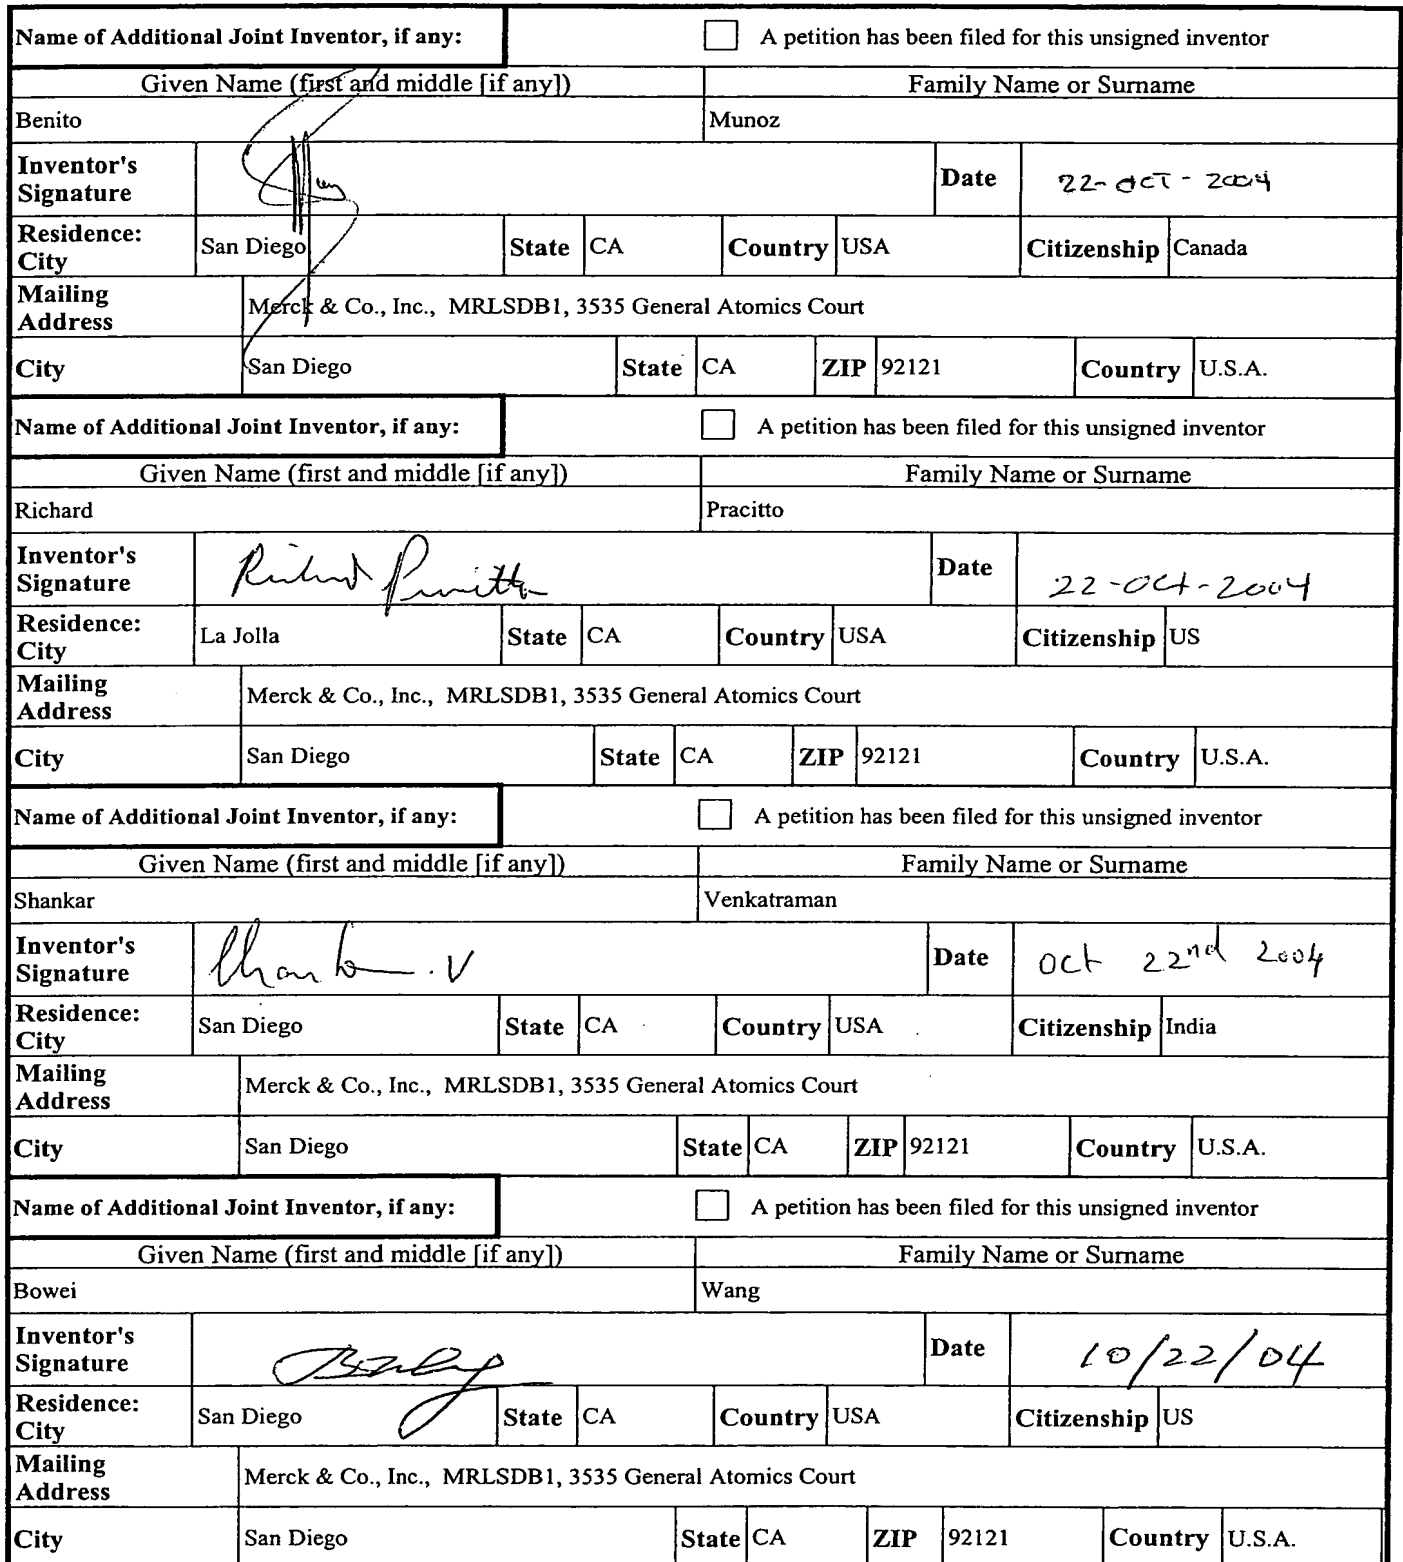 Name of Additional Joint Inventor, if any: A petition has been filed for this unsigned inventor
Given Name (first and middle [if any]) Family Name or Surname
Benito Munoz
Inventor's Signature Date 22-OCT-2004
Residence: City San Diego State CA Country USA Citizenship Canada
Mailing Address Merck & Co., Inc., MRLSDB1, 3535 General Atomics Court
City San Diego State CA ZIP 92121 Country U.S.A.
Name of Additional Joint Inventor, if any: A petition has been filed for this unsigned inventor
Given Name (first and middle [if any]) Family Name or Surname
Richard Pracitto
Inventor's Signature Date 22-Oct-2004
Residence: City La Jolla State CA Country USA Citizenship US
Mailing Address Merck & Co., Inc., MRLSDB1, 3535 General Atomics Court
City San Diego State CA ZIP 92121 Country U.S.A.
Name of Additional Joint Inventor, if any: A petition has been filed for this unsigned inventor
Given Name (first and middle [if any]) Family Name or Surname
Shankar Venkatraman
Inventor's Signature Date Oct 22nd 2004
Residence: City San Diego State CA Country USA Citizenship India
Mailing Address Merck & Co., Inc., MRLSDB1, 3535 General Atomics Court
City San Diego State CA ZIP 92121 Country U.S.A.
Name of Additional Joint Inventor, if any: A petition has been filed for this unsigned inventor
Given Name (first and middle [if any]) Family Name or Surname
Bowei Wang
Inventor's Signature Date 10/22/04
Residence: City San Diego State CA Country USA Citizenship US
Mailing Address Merck & Co., Inc., MRLSDB1, 3535 General Atomics Court
City San Diego State CA ZIP 92121 Country U.S.A.